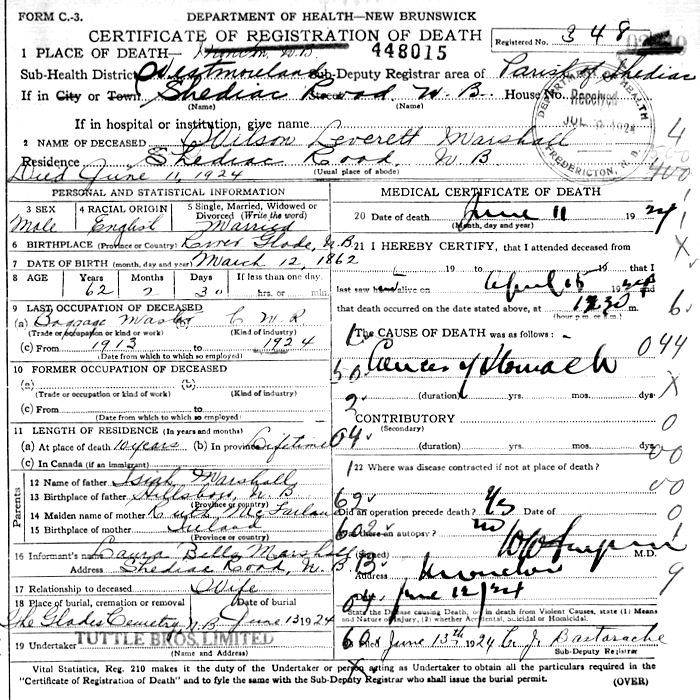 FORM C.-3.
DEPARTMENT OF HEALTH—NEW BRUNSWICK
CERTIFICATE OF REGISTRATION OF DEATH
Registered No. 348
1 PLACE OF DEATH— N.B. 448015
Sub-Health District Westmoreland Sub-Deputy Registrar area of Parish of Shediac
If in City or Town, Shediac Road N.B. House No.
(Name) (Name)
DEPARTMENT OF HEALTH
Received
JUL 1924
FREDERICTON, N.B.
If in hospital or institution, give name
2 NAME OF DECEASED Wilson Leverett Marshall
Residence Shediac Road, N B
(Usual place of abode)
Died June 11, 1924
PERSONAL AND STATISTICAL INFORMATION
3 SEX 4 RACIAL ORIGIN 5 Single, Married, Widowed or Divorced (Write the word)
Male English Married
6 BIRTHPLACE (Province or Country) River Glade, N.B.
7 DATE OF BIRTH (month, day and year) March 12, 1862
8 AGE Years Months Days If less than one day
62 2 30 hrs. or min.
9 LAST OCCUPATION OF DECEASED
(a) Baggage Master C N R
(Trade or occupation or kind of work) (Kind of industry)
(c) From 1913 to 1924
(Date from which to which so employed)
10 FORMER OCCUPATION OF DECEASED
(a) (b)
(Trade or occupation or kind of work) (Kind of industry)
(c) From to
(Date from which to which so employed)
11 LENGTH OF RESIDENCE (In years and months)
(a) At place of death 10 years (b) In province Lifetime
(c) In Canada (if an immigrant)
Parents
12 Name of father Isiah Marshall
13 Birthplace of father Hillsboro, N.B
(Province or country)
14 Maiden name of mother Ruth McFarlane
15 Birthplace of mother Ireland
(Province or country)
16 Informant's name Laura Bella Marshall
Address Shediac Road, N.B
17 Relationship to deceased Wife
18 Place of burial, cremation or removal Date of burial
The Glades Cemetery N.B. June 13 1924
TUTTLE BROS. LIMITED
19 Undertaker
(Name and Address)
MEDICAL CERTIFICATE OF DEATH
20 Date of death June 11 1924
(Month, day and year)
21 I HEREBY CERTIFY, that I attended deceased from
19 to 19 that I
last saw him alive on April 15 1924
that death occurred on the date stated above, at 1230 m.
(hour p.m. or a.m.)
The CAUSE OF DEATH was as follows:
Cancer of Stomach
044
(duration) yrs. mos. dys.
CONTRIBUTORY
(Secondary)
(duration) yrs. mos. dys.
22 Where was disease contracted if not at place of death?
Did an operation precede death? Yes Date of
Was there an autopsy? no
(Signed) M.D.
Address Moncton
June 12/24
State the Disease causing Death, or in death from Violent Causes, state (1) Means and Nature of Injury, (2) whether Accidental, Suicidal or Homicidal.
Filed June 13th 1924 C. J. Bastarache
Sub-Deputy Registrar
Vital Statistics, Reg. 210 makes it the duty of the Undertaker or person acting as Undertaker to obtain all the particulars required in the
"Certificate of Registration of Death" and to fyle the same with the Sub-Deputy Registrar who shall issue the burial permit. (OVER)